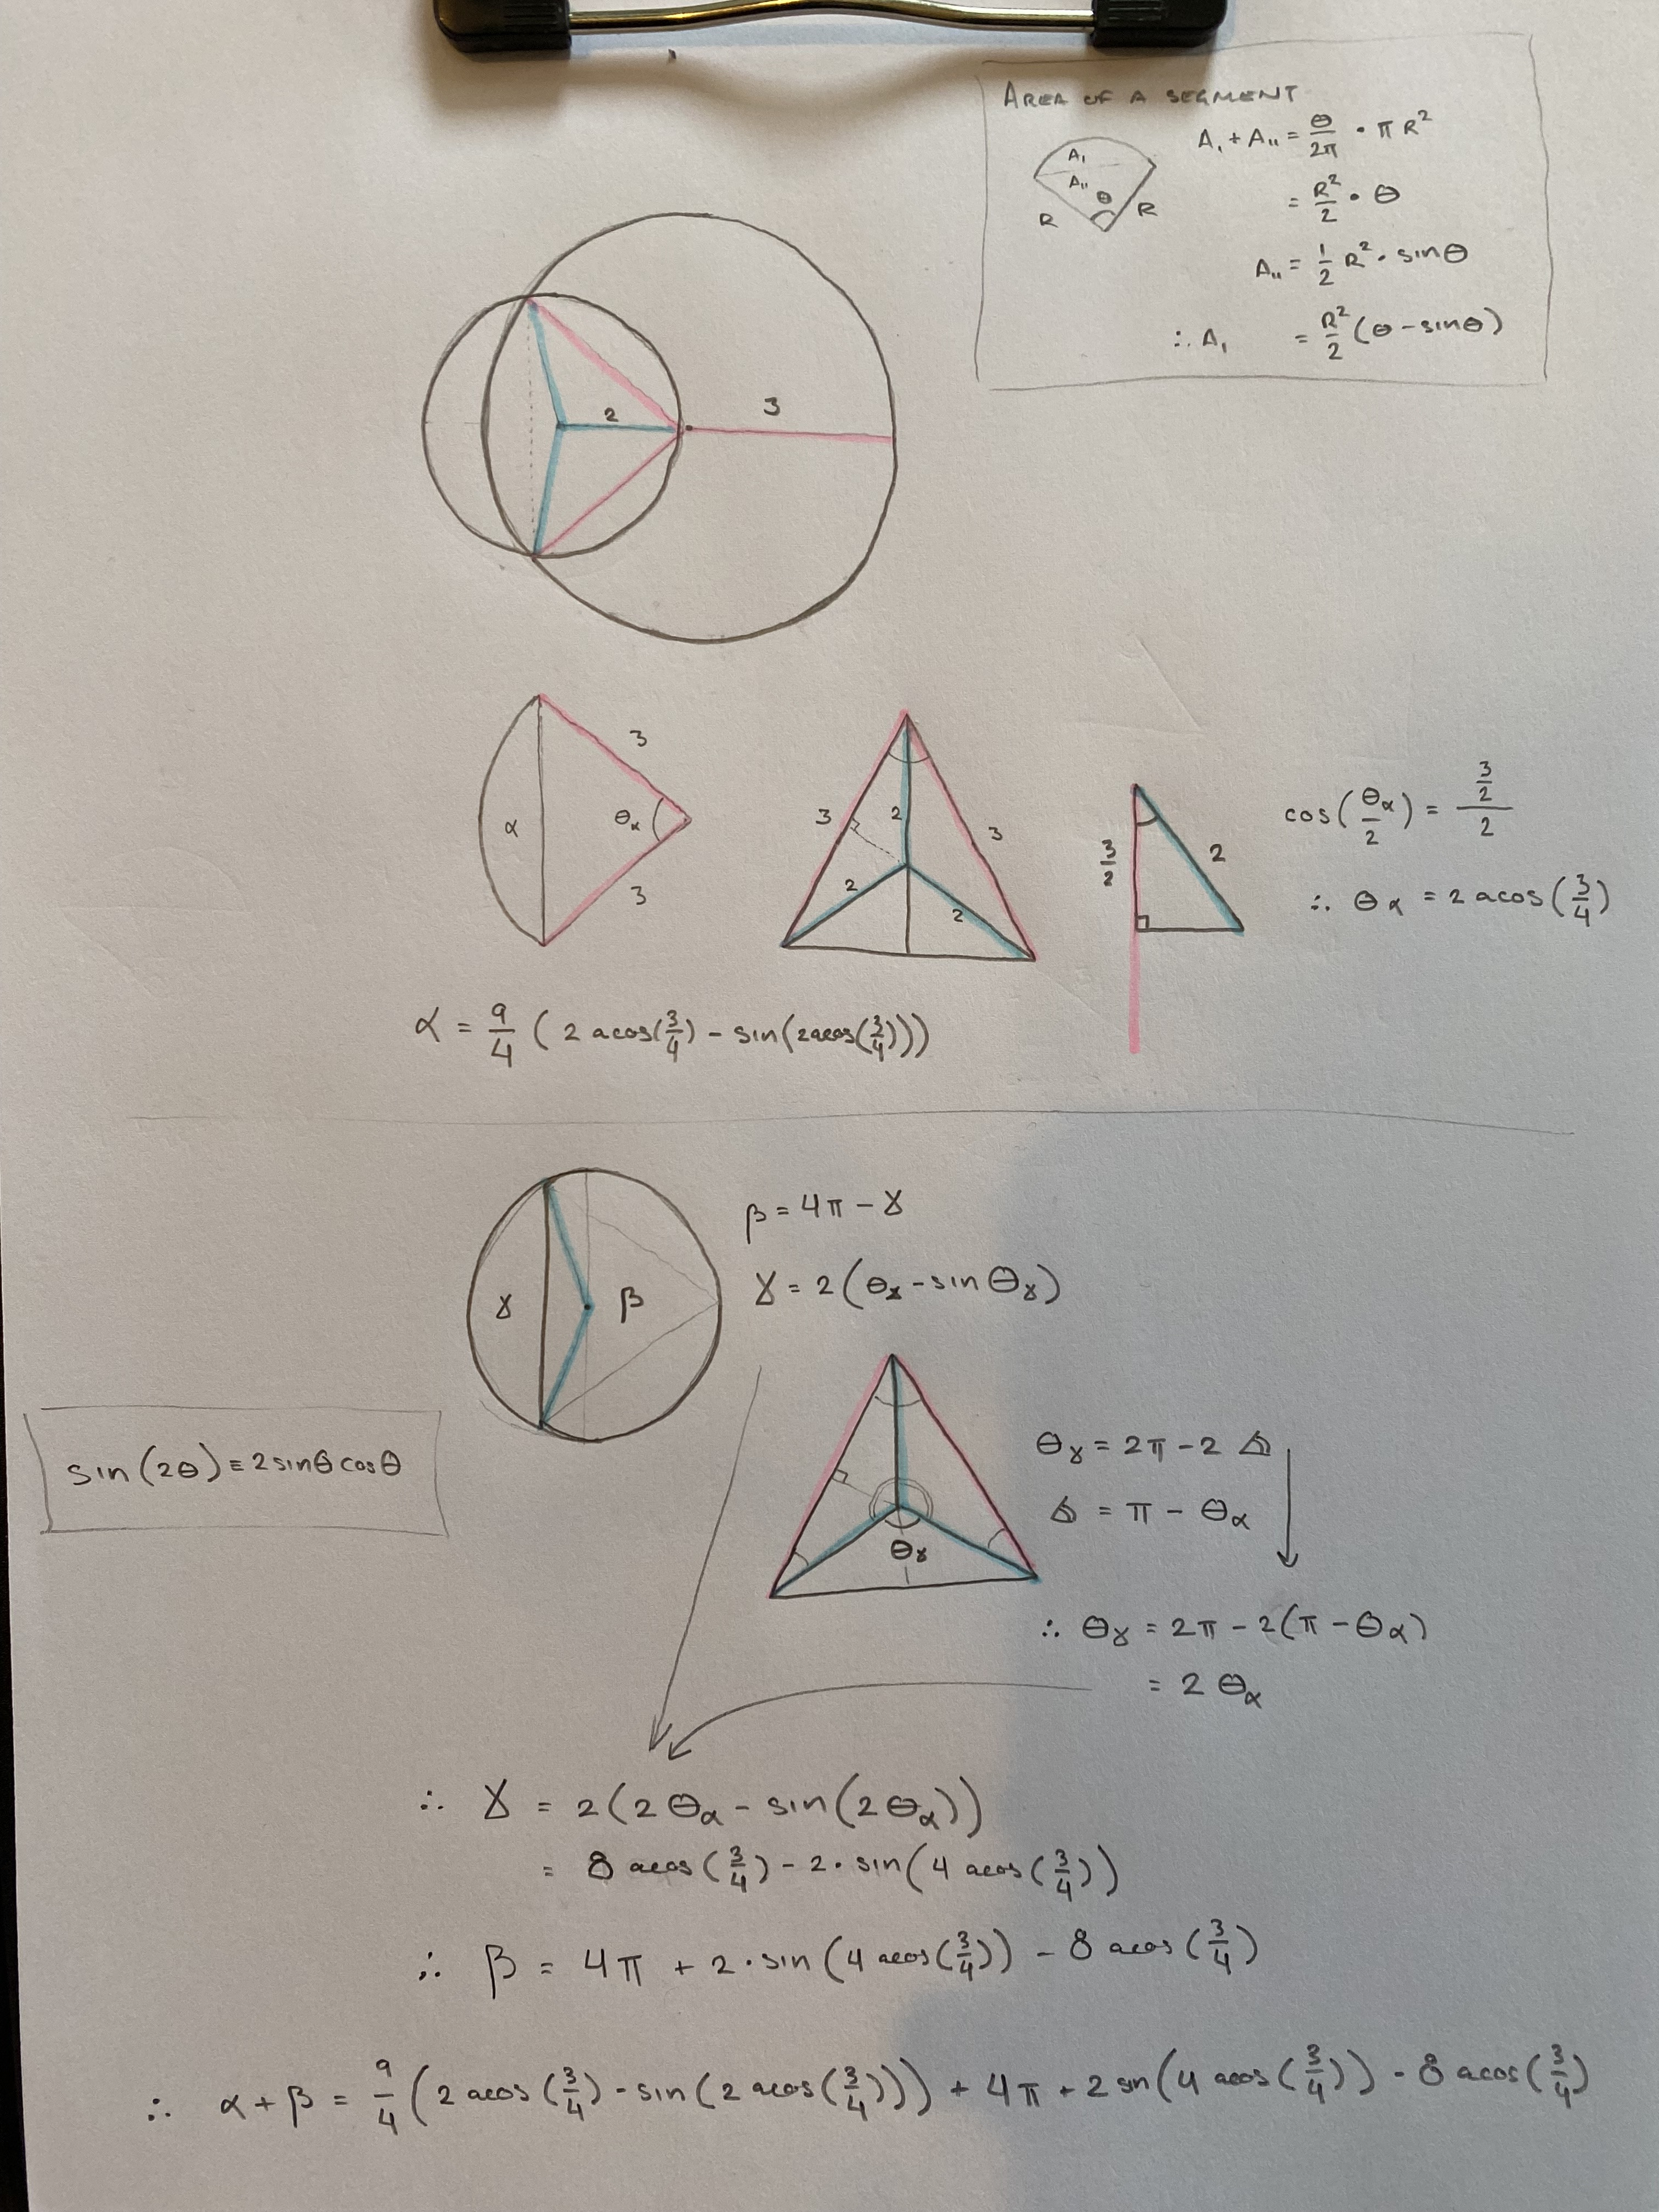 AREA OF A SEGMENT
A₁ + A₁₁ = θ/2π · πR²
= R²/2 · θ
A₁₁ = 1/2 R² · sinθ
∴ A₁ = R²/2 (θ - sinθ)
A₁
A₁₁
θ
R
R
2
3
α
3
θα
3
3
2
3
2
2
3/2
2
cos(θα/2) = (3/2)/2
∴ θα = 2 acos(3/4)
α = 9/4 (2 acos(3/4) - sin(2acos(3/4)))
γ
β
β = 4π - γ
γ = 2(θγ - sinθγ)
sin(2θ) ≡ 2sinθcosθ
θγ
θγ = 2π - 2 ⦛
⦛ = π - θα
∴ θγ = 2π - 2(π - θα)
= 2 θα
∴ γ = 2(2θα - sin(2θα))
= 8 acos(3/4) - 2 · sin(4 acos(3/4))
∴ β = 4π + 2 · sin(4 acos(3/4)) - 8 acos(3/4)
∴ α + β = 9/4 (2 acos(3/4) - sin(2 acos(3/4))) + 4π + 2 sin(4 acos(3/4)) - 8 acos(3/4)